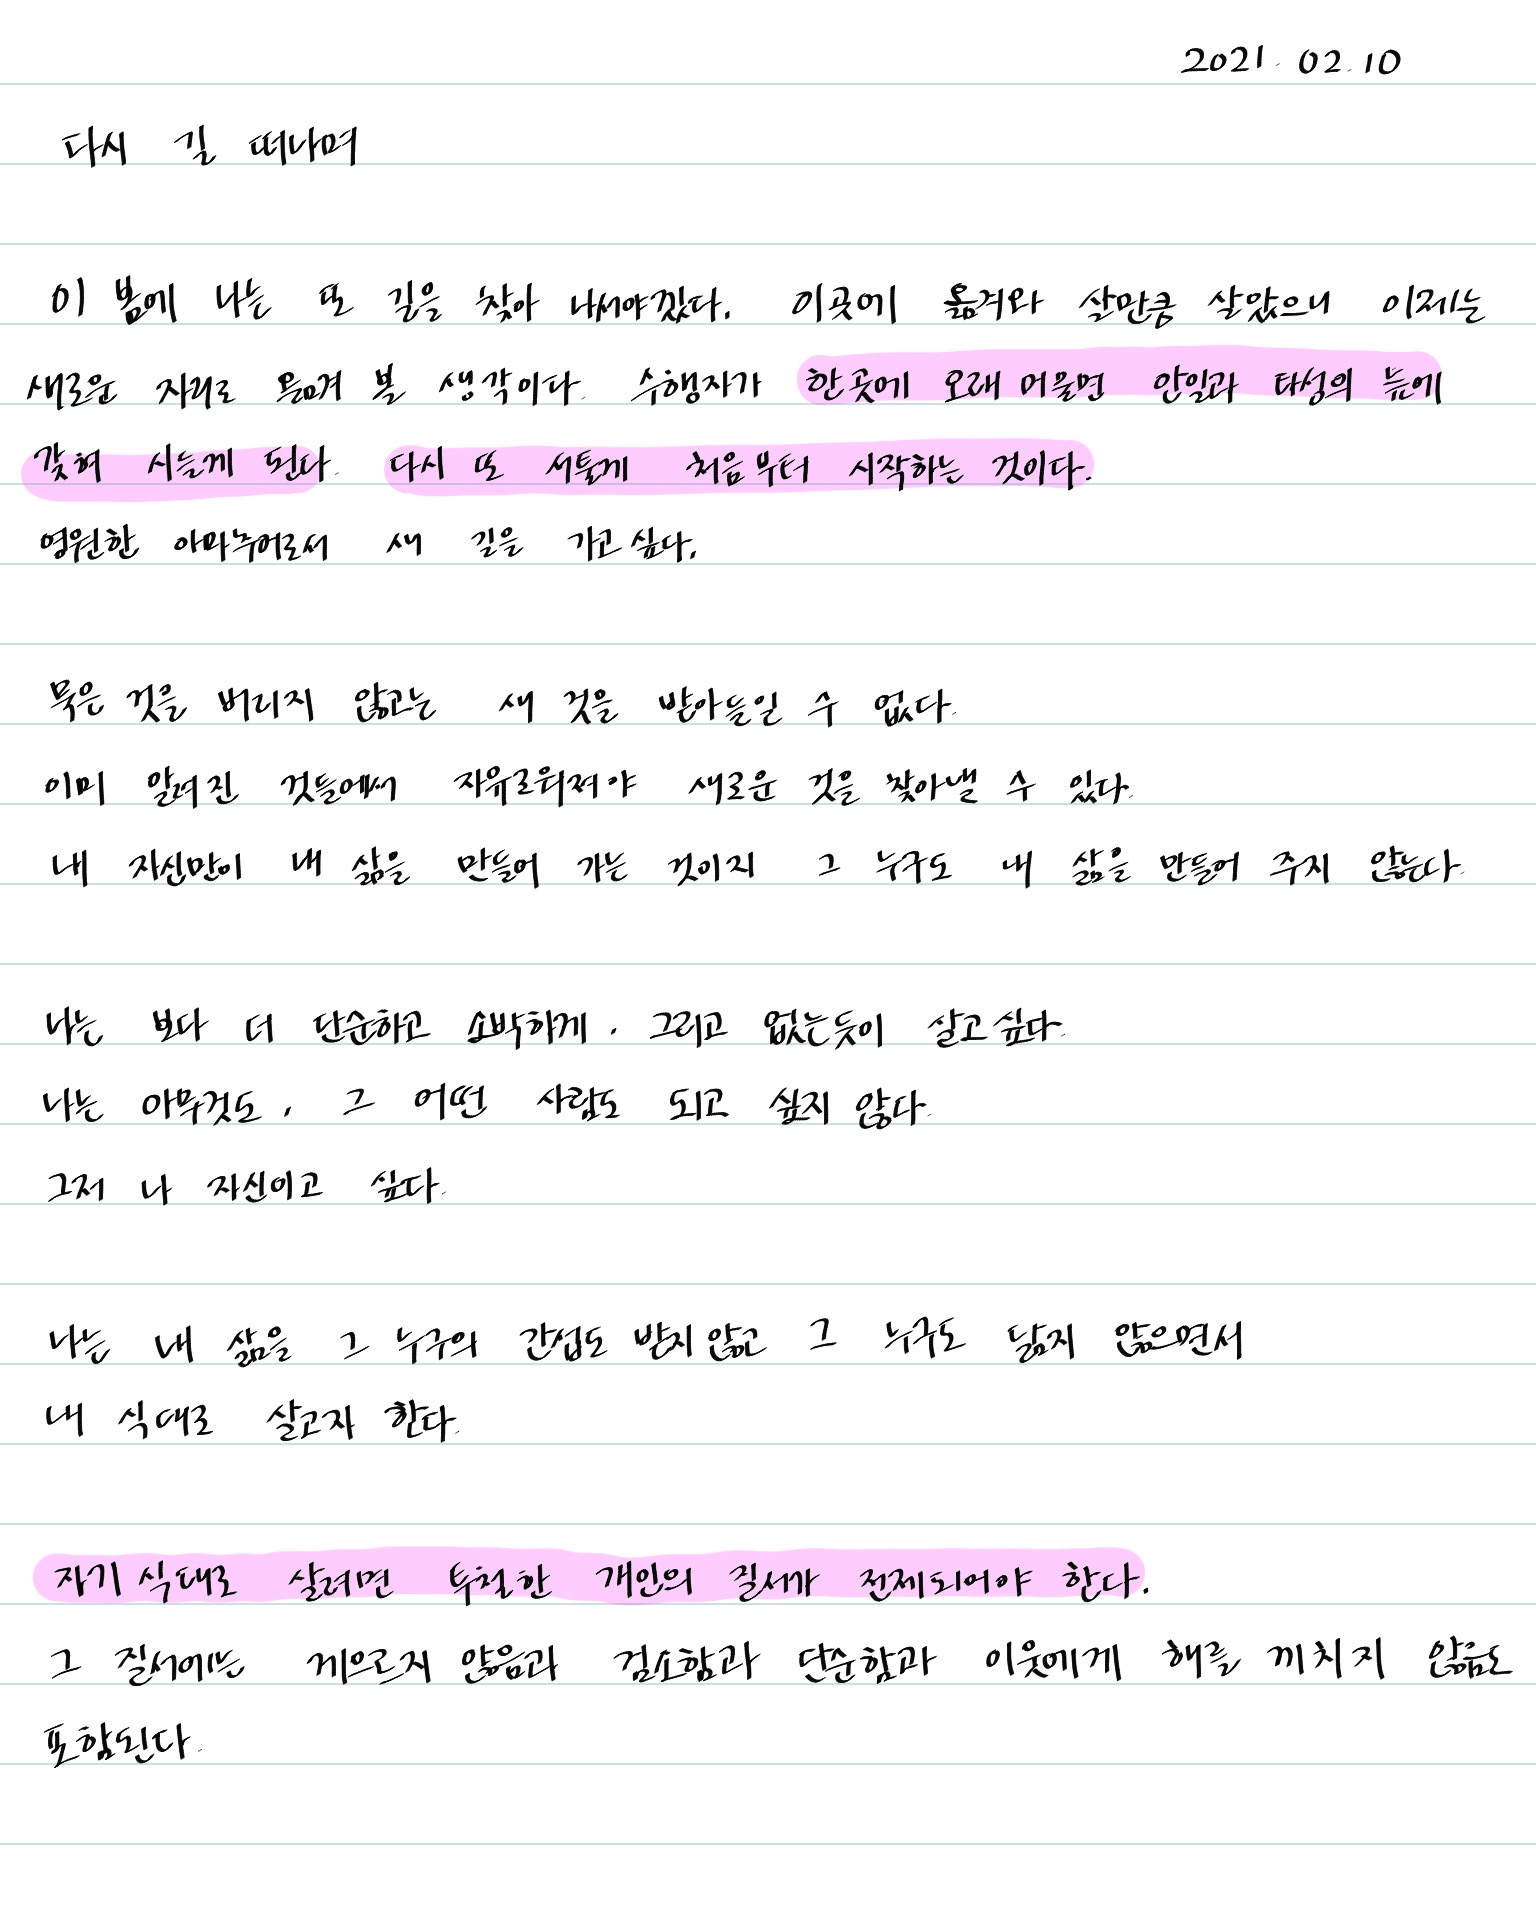 2021. 02. 10
다시 길 떠나며
이 봄에 나는 또 길을 찾아 나서야겠다. 이곳에 옮겨와 살만큼 살았으니 이제는
새로운 자리로 옮겨 볼 생각이다. 수행자가 한곳에 오래 머물면 안일과 타성의 늪에
갖혀 시들게 된다. 다시 또 서툴게 처음부터 시작하는 것이다.
영원한 아마추어로서 새 길을 가고 싶다.
묵은 것을 버리지 않고는 새 것을 받아들일 수 없다.
이미 알려진 것들에서 자유로워져야 새로운 것을 찾아낼 수 있다.
내 자신만이 내 삶을 만들어 가는 것이지 그 누구도 내 삶을 만들어 주지 않는다.
나는 보다 더 단순하고 소박하게, 그리고 없는듯이 살고 싶다.
나는 아무것도, 그 어떤 사람도 되고 싶지 않다.
그저 나 자신이고 싶다.
나는 내 삶을 그 누구의 간섭도 받지 않고 그 누구도 닮지 않으면서
내 식대로 살고자 한다.
자기 식대로 살려면 투철한 개인의 질서가 전제되어야 한다.
그 질서에는 게으르지 않음과 검소함과 단순함과 이웃에게 해를 끼치지 않음도
포함된다.